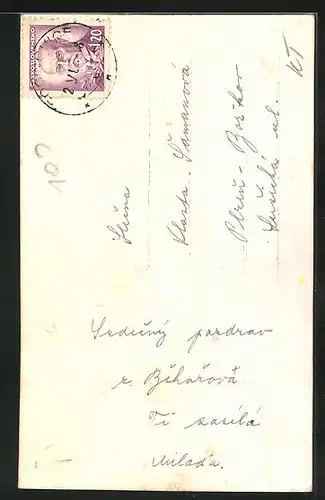 ČESKOSLOVENSKO
1.20
2.VI.
10?
KT
Slečna
Vlasta Šámanová
Plzeň - Božkov
ul.
Srdečný pozdrav
z Běhařova
Ti zasílá
Milada.